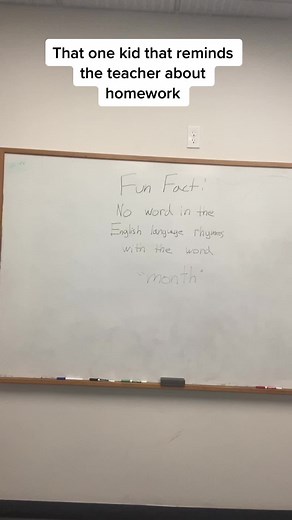 That one kid that reminds
the teacher about
homework
Fun Fact:
No word in the
English language rhymes
with the word
"month"